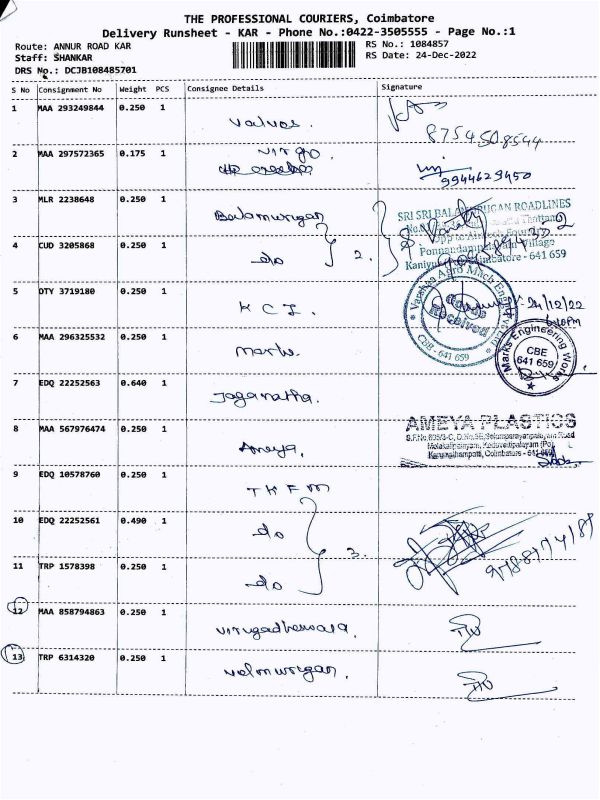 THE PROFESSIONAL COURIERS, Coimbatore
Delivery Runsheet - KAR - Phone No.:0422-3505555 - Page No.:1
Route: ANNUR ROAD KAR RS No.: 1084857
Staff: SHANKAR RS Date: 24-Dec-2022
DRS No.: DCJB108485701
S No Consignment No Weight PCS Consignee Details Signature
1 MAA 293249844 0.250 1 valves.
8754508544
2 MAA 297572365 0.175 1 virgo
9944629450
3 MLR 2238648 0.250 1 Balamurugan
SRI SRI BALAMURUGAN ROADLINES
4 CUD 3205868 0.250 1 do } 2.
Opp to
Ponnandampalayam Village
Coimbatore - 641 659
5 DTY 3719180 0.250 1 K C I.
Vaeshaa Agro Mach Engineering
Goods Received
CDB - 641 659
24/12/22
6 MAA 296325532 0.250 1 marks.
Marks Engineering Works
CBE
641 659
7 EDQ 22252563 0.640 1 Jaganatha.
8 MAA 567976474 0.250 1 Ameya.
AMEYA PLASTICS
Coimbatore - 641 659
9 EDQ 10578760 0.250 1 T K F M
10 EDQ 22252561 0.490 1 do } 3.
11 TRP 1578398 0.250 1 do
12 MAA 858794863 0.250 1
13 TRP 6314320 0.250 1